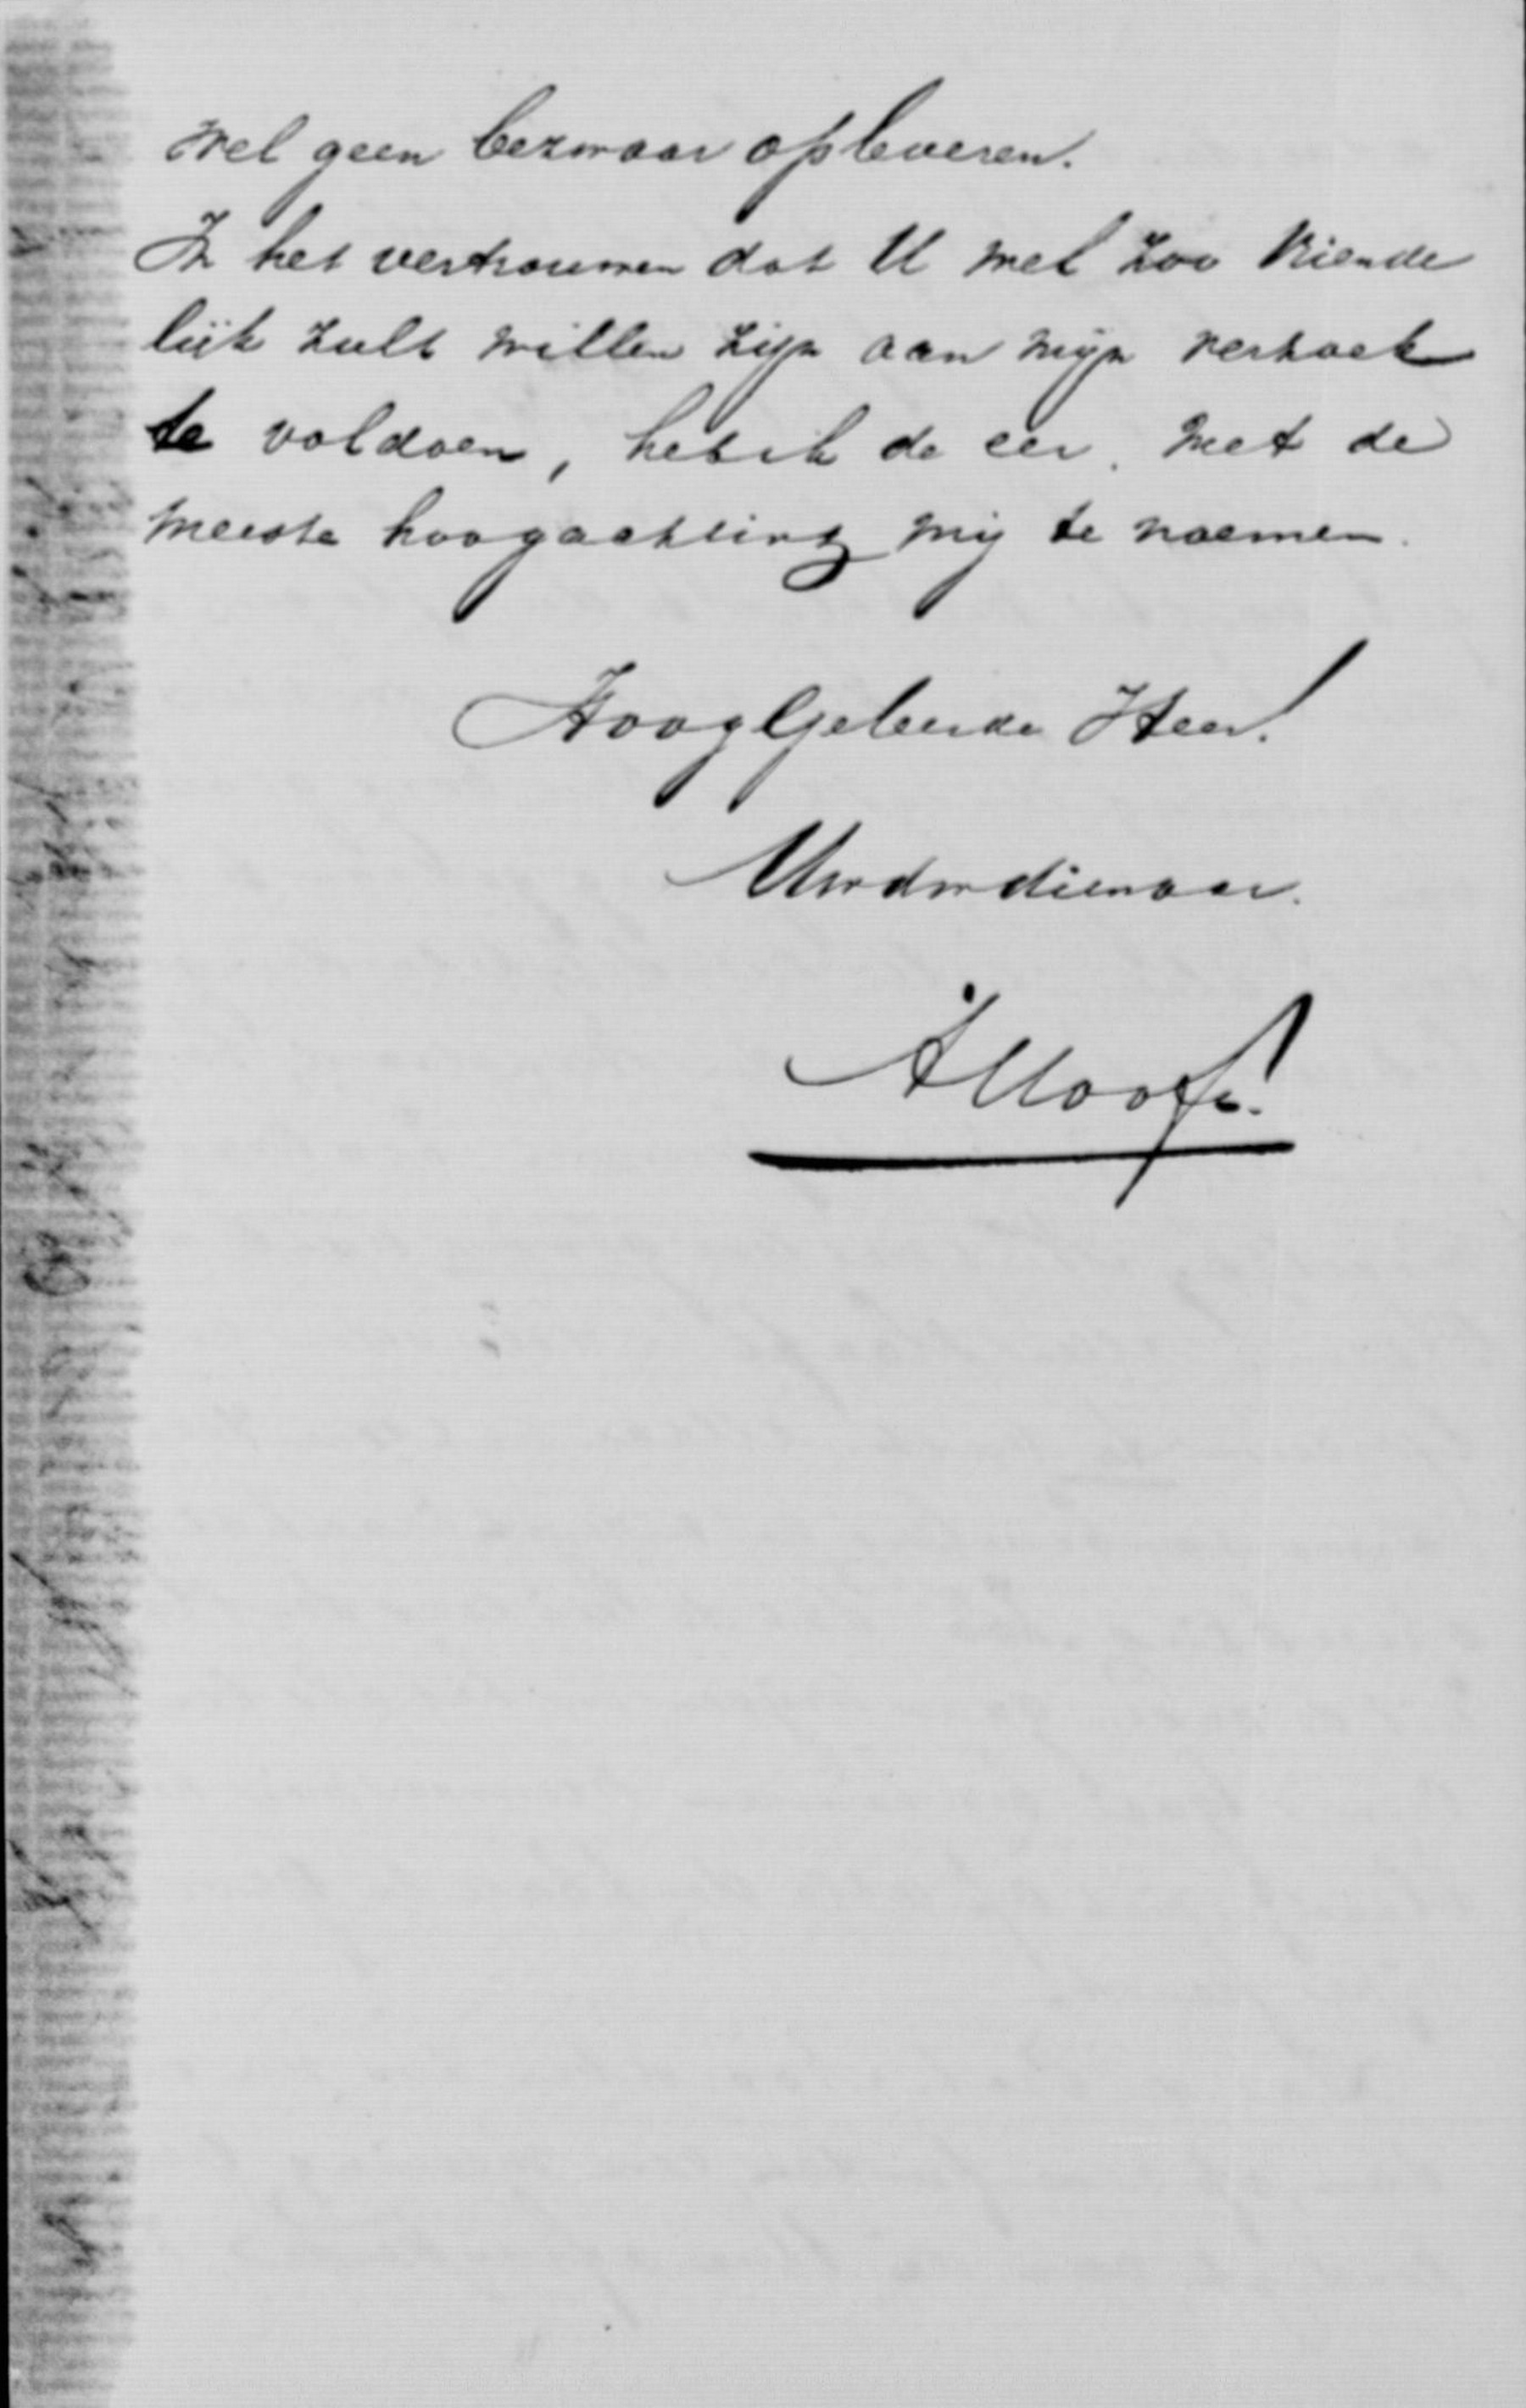 wel geen bezwaar opleveren.
In het vertrouwen dat U wel zoo vriende
lijk zult willen zijn aan mijn verzoek
te voldoen, heb ik de eer, met de
meeste hoogachting mij te noemen.
HoogGeleerde Heer!
Uwdwdienaar.